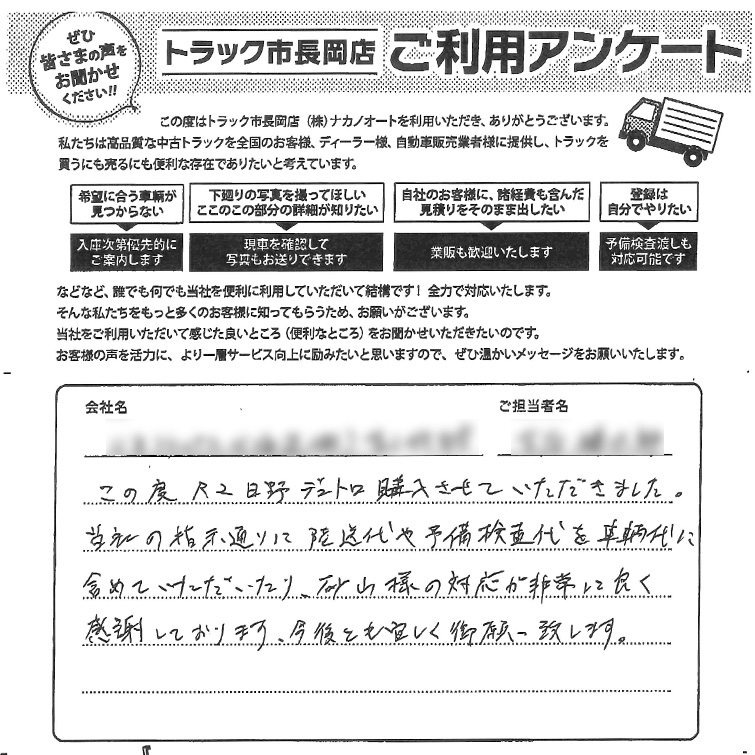 ぜひ
皆さまの声を
お聞かせ
ください!!
トラック市長岡店 ご利用アンケート
この度はトラック市長岡店（株）ナカノオートを利用いただき、ありがとうございます。
私たちは高品質な中古トラックを全国のお客様、ディーラー様、自動車販売業者様に提供し、トラックを
買うにも売るにも便利な存在でありたいと考えています。
希望に合う車輌が
見つからない
入庫次第優先的に
ご案内します
下廻りの写真を撮ってほしい
ここのこの部分の詳細が知りたい
現車を確認して
写真もお送りできます
自社のお客様に、諸経費も含んだ
見積りをそのまま出したい
業販も歓迎いたします
登録は
自分でやりたい
予備検査渡しも
対応可能です
などなど、誰でも何でも当社を便利に利用していただいて結構です！全力で対応いたします。
そんな私たちをもっと多くのお客様に知ってもらうため、お願いがございます。
当社をご利用いただいて感じた良いところ（便利なところ）をお聞かせいただきたいのです。
お客様の声を活力に、より一層サービス向上に励みたいと思いますので、ぜひ温かいメッセージをお願いいたします。
会社名 ご担当者名
この度 R2日野デュトロ購入させていただきました。
当社の指示通りに 陸送代や予備検査代を車輌代に
含めていただいたり、砂山様の対応が非常に良く
感謝しております。今後とも宜しく御願い致します。